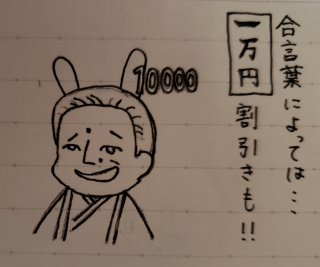 合言葉によっては…
一万円割引きも!!
10000